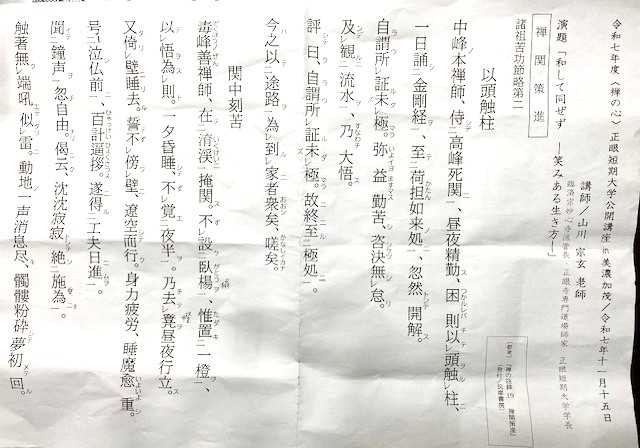 令和七年度〈禅の心〉正眼短期大学公開講座 in 美濃加茂／令和七年十一月十五日
演題「和して同ぜず ―笑みある生き方―」
講師／山川 宗玄 老師
臨済宗妙心寺派管長 正眼寺専門道場師家 正眼短期大学学長
禅関策進
諸祖苦功節略第二
以頭触柱
中峰本禅師、侍高峰死関、昼夜精勤、困則以頭触柱、
一日誦金剛経、至荷担如来処、忽然開解。
自謂所証未極。弥益勤苦、咨決無怠。
及観流水、乃大悟。
評曰、自謂所証未極。故終至極処。
今之以途路為到家者衆矣、嗟矣。
関中刻苦
毒峰善禅師、在淯渓掩関。不設臥榻、惟置一橙、
以悟為則。一夕昏睡、不覚夜半。乃去凳昼夜行立。
又倚壁睡去。誓不傍壁、遼空而行。身力疲労、睡魔愈重。
号泣仏前、百計逼拶。遂得工夫日進。
聞鐘声、忽自由。偈云、沈沈寂寂絶施為。
触著無端吼似雷。動地一声消息尽、髑髏粉砕夢初回。